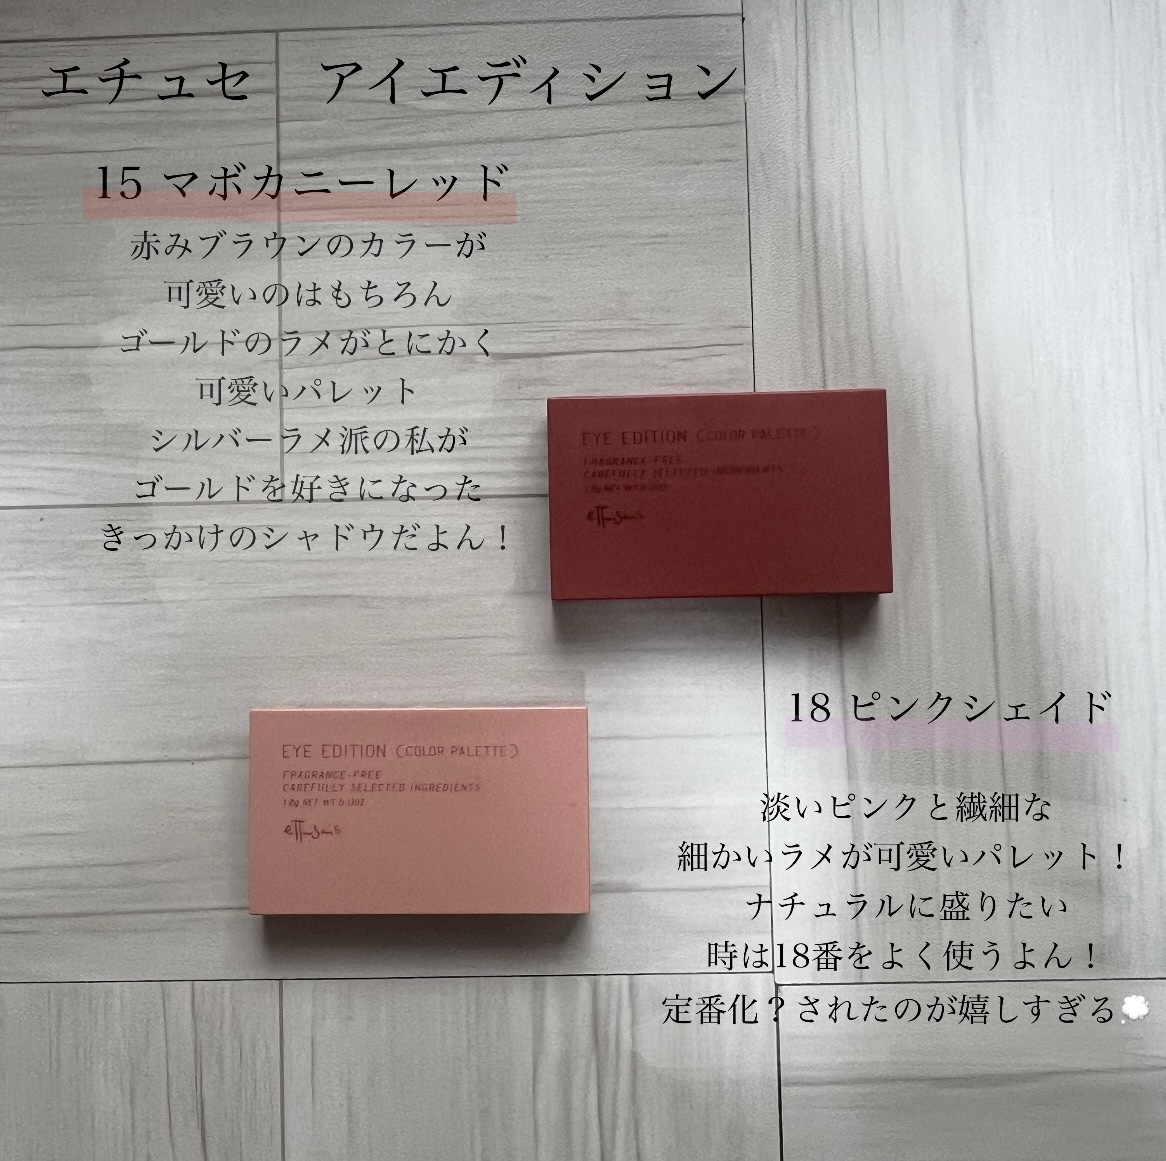 エチュセ　アイエディション
15 マボカニーレッド
赤みブラウンのカラーが
可愛いのはもちろん
ゴールドのラメがとにかく
可愛いパレット
シルバーラメ派の私が
ゴールドを好きになった
きっかけのシャドウだよん！
EYE EDITION (COLOR PALETTE)
FRAGRANCE-FREE
CAREFULLY SELECTED INGREDIENTS
ettusais
EYE EDITION (COLOR PALETTE)
FRAGRANCE-FREE
CAREFULLY SELECTED INGREDIENTS
ettusais
18 ピンクシェイド
淡いピンクと繊細な
細かいラメが可愛いパレット！
ナチュラルに盛りたい
時は18番をよく使うよん！
定番化？されたのが嬉しすぎる